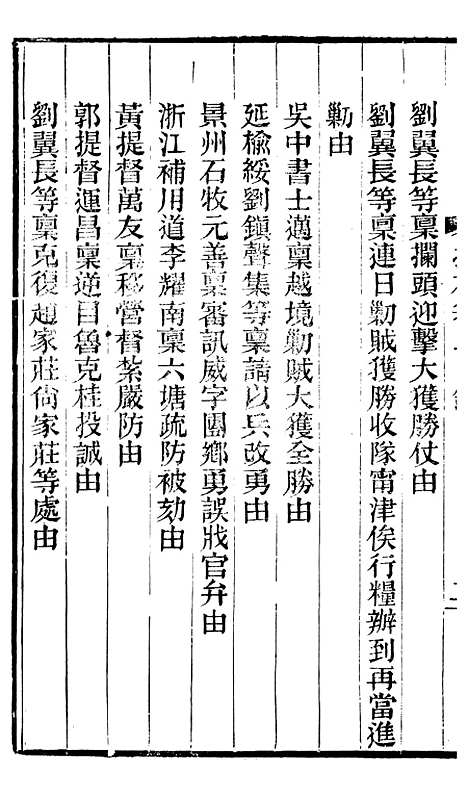 劉翼長等稟攔頭迎擊大獲勝仗由
劉翼長等稟連日勦賊獲勝收隊甯津俟行糧辦到再當進
勦由
吳中書士邁稟越境勦賊大獲全勝由
延榆綏劉鎮聲集等稟請以兵改勇由
景州石牧元善稟審訊威字團鄉勇誤戕官弁由
浙江補用道李耀南稟六塘疏防被劾由
黃提督萬友稟移營督紮嚴防由
郭提督運昌稟逆目魯克桂投誠由
劉翼長等稟克復趙家莊尙家莊等處由